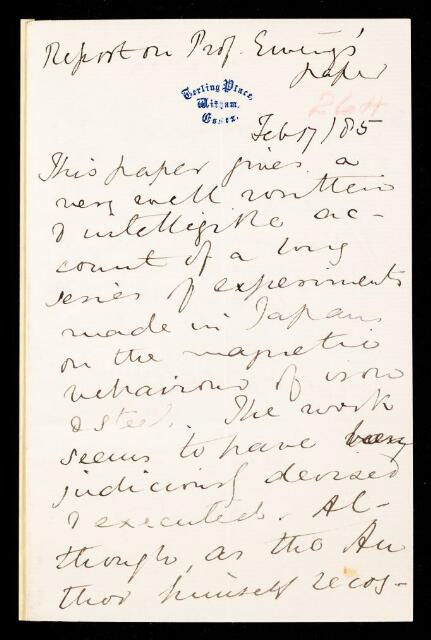 Report on Prof. Ewing's
paper
Terling Place,
Witham,
Essex.
264
Feb 17/85
This paper gives a
very well written
& intelligible ac-
count of a long
series of experiments
made in Japan
on the magnetic
behaviour of iron
& steel. The work
seems to have been
judiciously devised
& executed. Al-
though, as the Au
thor himself recog-